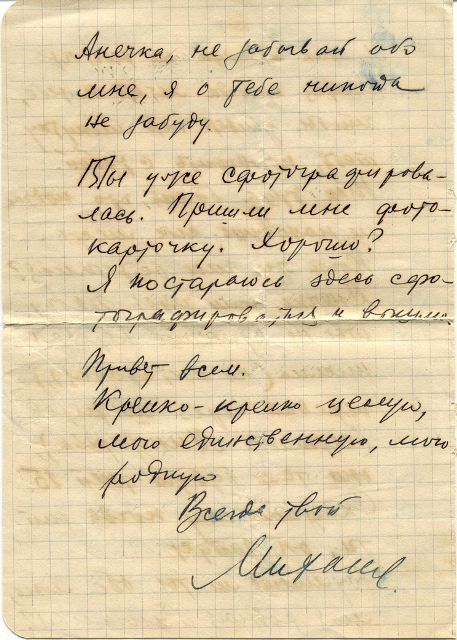 Анечка, не забывай обо
мне, я о тебе никогда
не забуду.
Ты уже сфотографирова-
лась. Пришли мне фото-
карточку. Хорошо?
Я постараюсь здесь сфо-
тографироваться и
Привет всем.
Крепко-крепко целую,
мою единственную, мою
родную
Всегда твой
Михаил.